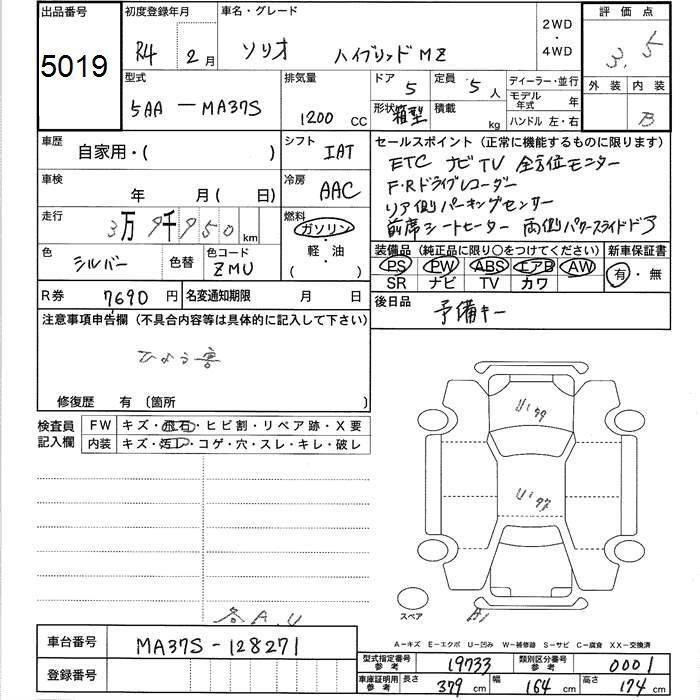 出品番号 初度登録年月 車名・グレード 2WD・4WD 評価点
5019 R4 2月 ソリオ ハイブリッドMZ 3.5
型式 排気量 ドア 5 定員 5人 ディーラー・並行 外装 内装
5AA-MA37S 1200 CC 形状 箱型 積載 kg モデル年式 年
ハンドル 左・右 B
車歴 自家用・( ) シフト IAT セールスポイント(正常に機能するものに限ります)
ETC ナビTV 全方位モニター
車検 年 月(日) 冷房 AAC F・Rドライブレコーダー
リア側パーキングセンサー
走行 3万9千950km 燃料 ガソリン・軽・油( ) 前席シートヒーター 両側パワースライドドア
色 シルバー 色替 色コード ZMU 装備品(純正品に限り○をつけてください) 新車保証書
PS PW ABS エアB AW 有・無
SR ナビ TV カワ
R券 7690円 名変通知期限 月 日 後日品 予備キー
注意事項申告欄(不具合内容等は具体的に記入して下さい)
ひょう害
修復歴 有(箇所 )
検査員記入欄 FW キズ・飛石・ヒビ割・リペア跡・X要
内装 キズ・汚レ・コゲ・穴・スレ・キレ・破レ
各A.U
U'99
U'97
スペア A1
A−キズ E−エクボ U−凹み W−補修跡 S−サビ C−腐食 XX−交換済
車台番号 MA37S-128271
型式指定番号参考 19733 類別区分番号参考 0001
登録番号 車庫証明用参考 長さ 379cm 幅 164cm 高さ 174cm